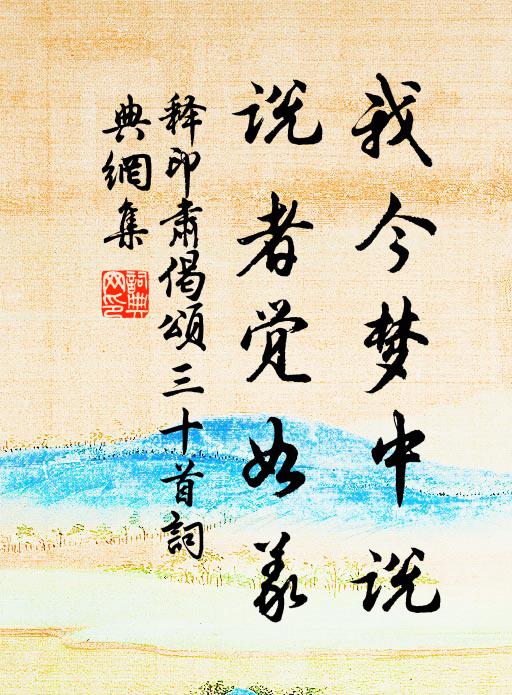 我今梦中说
说者觉如义
释印肃偈颂三十首詞
典網集
詞典網印